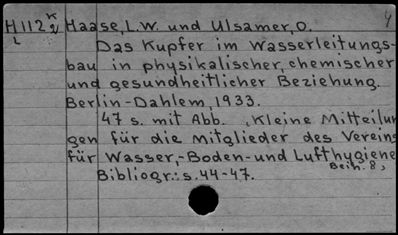 H1122 Haase, L.W. und Ulsamer, O.
Das Kupfer im Wasserleitungs-
bau in physikalischer, chemischer
und gesundheitlicher Beziehung.
Berlin-Dahlem, 1933.
47 s. mit Abb. Kleine Mitteilun
gen für die Mitglieder des Vereins
für Wasser,-Boden-und Lufthygiene
Beih. 8,
Bibliogr.: s. 44-47.